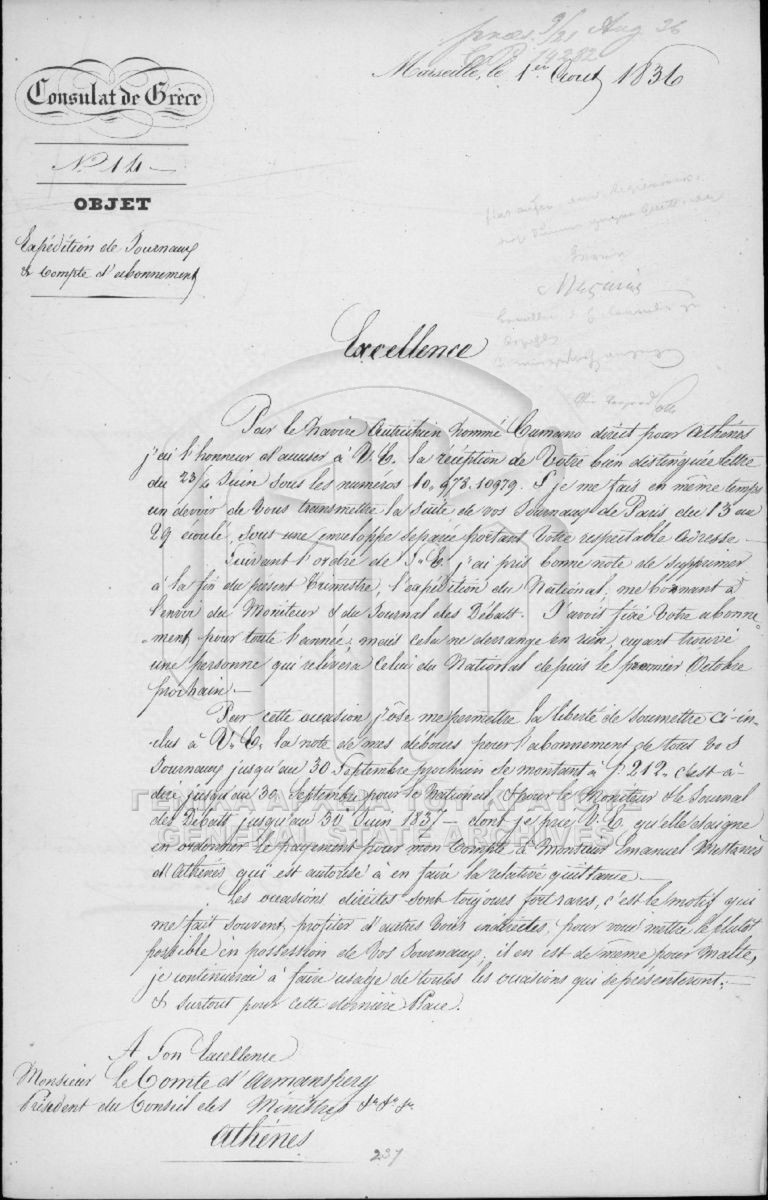 praes. 9/21 Aug 36
Marseille, le 1er Aout 1836
Consulat de Grèce
No 14
OBJET
Expédition de Journaux
& Compte d'abonnement
Excellence
Par le Navire Autrichien nommé Cumano direct pour Athènes
j'ai l'honneur d'accuser à V. E. la réception de Votre bien distinguée lettre
du 23/4 Juin sous les numeros 10,978. 10979. & je me fais en même temps
un devoir de Vous transmettre la Suite de vos Journaux de Paris du 13 au
29 écoulé, sous une enveloppe separée portant Votre respectable adresse —
Suivant l'ordre de V. E. j'ai pris bonne note de supprimer
à la fin du présent Trimestre, l'expédition du National, me bornant à
l'envoi du Moniteur & du Journal des Débats. J'avois fixé Votre abonne-
ment, pour toute l'année; mais cela ne derrange en rien, ayant trouvé
une personne qui relèvera Celui du National depuis le premier Octobre
prochain. —
Par cette occasion j'ôse me permettre la liberté de soumettre ci-in-
clus à V. E. la note de mes débours pour l'abonnement de tous vos
Journaux jusqu'au 30 Septembre prochain se montant à f. 212. c'est-à-
dire jusqu'au 30 Septembre pour le National, & pour le Moniteur & le Journal
des Débats jusqu'au 30 Juin 1837 — dont je prie V. E. qu'elle daigne
en ordonner le payement pour mon Compte à Monsieur Emanuel
d'Athènes qui est autorisé à en faire la relative quittance. —
Les occasions directes sont toujours fort rares, c'est le motif qui
me fait souvent profiter d'autres voies indirectes, pour vous mettre le plutôt
possible en possession de Vos Journaux; il en est de même pour Malte,
je continuerai à faire usage de toutes les occasions qui se présenteront, —
& surtout pour cette dernière Place.
ΓΕΝΙΚΑ ΑΡΧΕΙΑ ΤΟΥ ΚΡΑΤΟΥΣ
GENERAL STATE ARCHIVES
A Son Excellence
Monsieur Le Comte d'Armansperg
Président du Conseil des Ministres &a &a &a
Athènes
237